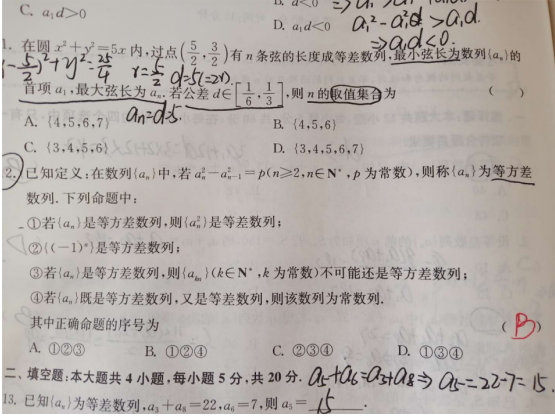 C. a₁d>0
D. a₁d<0 a₁²-a₁²d>a₁d.
⇒a₁d<0.
1. 在圆 x²+y²=5x 内,过点(5/2, 3/2)有 n 条弦的长度成等差数列,最小弦长为数列{aₙ}的
-5/2)²+y²=25/4 r=5/2 d=5(=2r)
首项 a₁,最大弦长为 aₙ. 若公差 d∈[1/6, 1/3],则 n 的取值集合为 ( )
aₙ=d=5.
A. {4,5,6,7} B. {4,5,6}
C. {3,4,5,6} D. {3,4,5,6,7}
2. 已知定义:在数列{aₙ}中,若 aₙ²-aₙ₋₁²=p(n≥2,n∈N*,p 为常数),则称{aₙ}为等方差
数列. 下列命题中:
①若{aₙ}是等方差数列,则{aₙ²}是等差数列;
②{(-1)ⁿ}是等方差数列;
③若{aₙ}是等方差数列,则{aₖₙ}(k∈N*,k 为常数)不可能还是等方差数列;
④若{aₙ}既是等方差数列,又是等差数列,则该数列为常数列.
其中正确命题的序号为 ( B )
A. ①②③ B. ①②④ C. ②③④ D. ①③④
二、填空题:本大题共 4 小题,每小题 5 分,共 20 分. a₅+a₆=a₃+a₈⇒a₅=22-7=15.
13. 已知{aₙ}为等差数列,a₃+a₈=22,a₆=7,则 a₅= 15 .